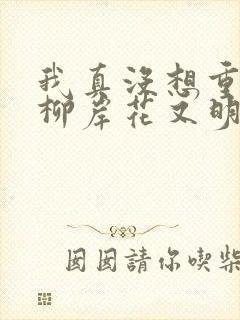 我真没想重
柳岸花又明
囡囡請你喫柴